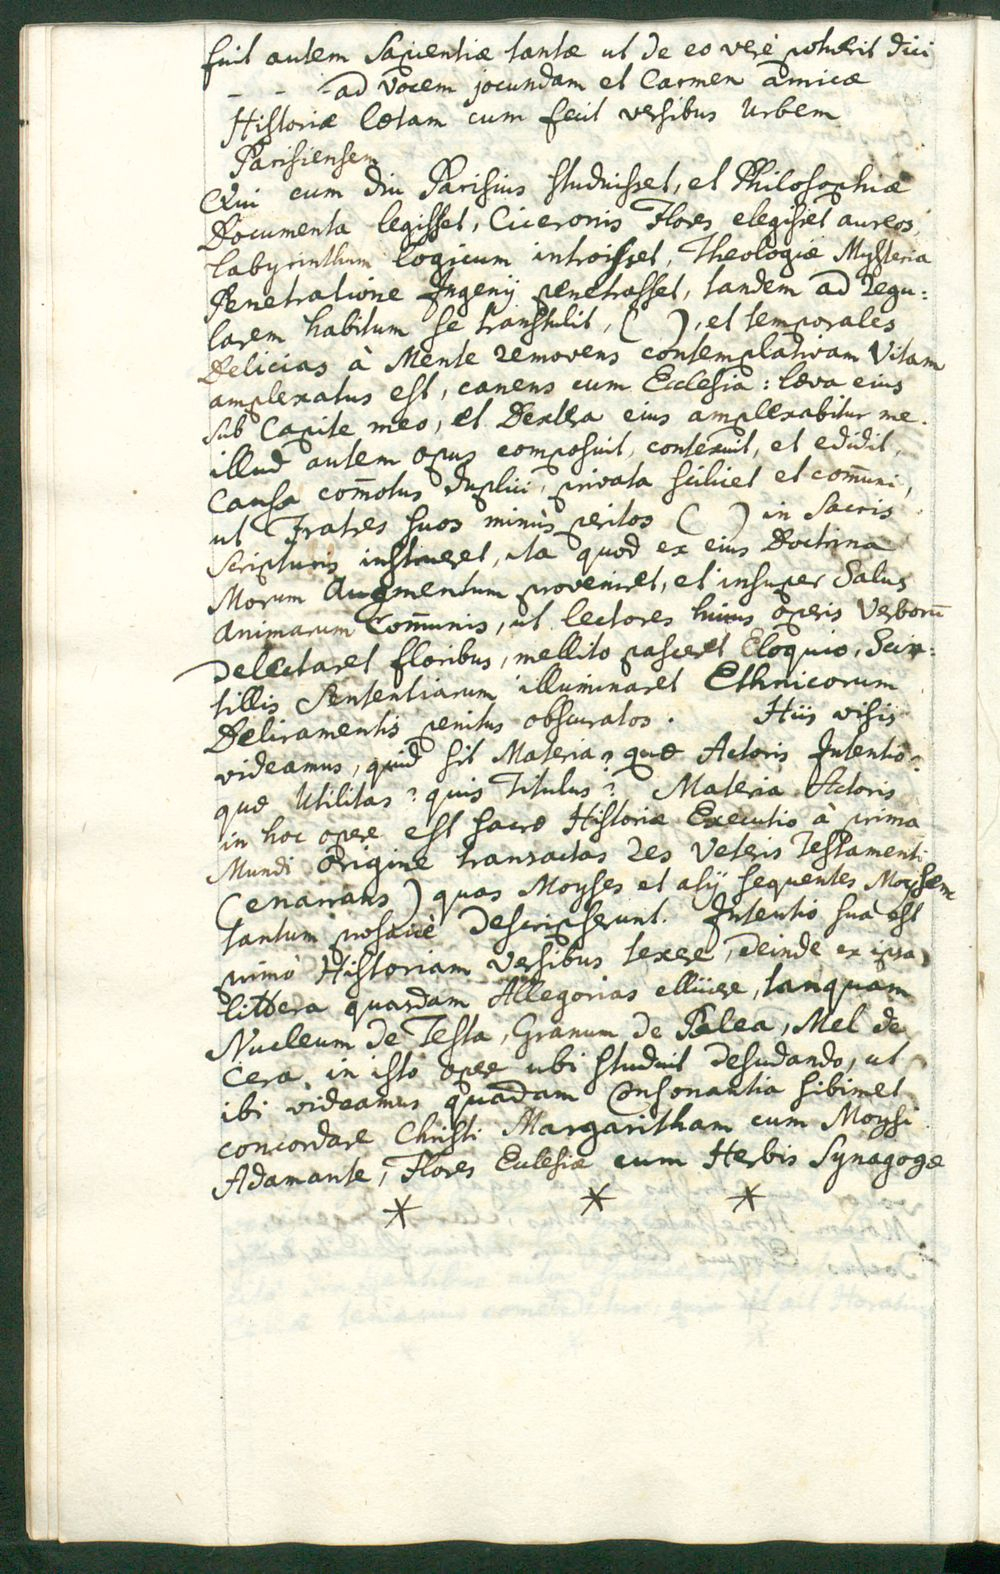 fuit autem Sapientiæ tantæ ut de eo verè potuerit dici
- - - ad vocem jocundam et Carmen amicæ
Historiæ lætam cum fecit versibus Urbem
Parisiensem
Qui cum diu Parisius studuisset, et Philosophiæ
Documenta legisset, Ciceronis Flores elegisset aureos,
Labyrinthum logicum introisset, Theologiæ Mysteria
Penetratione Ingenij penetrasset, tandem ad regu:
larem habitum se transtulit, ( ), et temporales
Delicias à Mente removens contemplativam Vitam
amplexatus est, canens cum Ecclesia: læva eius
sub Capite meo, et Dextra eius amplexabitur me.
illud autem opus composuit, contexuit, et edidit,
Causa com̄otus duplici, privata scilicet et com̄uni,
ut Fratres suos minùs peritos ( ) in Sacris
Scripturis instrueret, ita quod ex eius Doctrina
Morum Augmentum proveniret, et insuper Salus
Animarum Com̄unis, ut lectores huius operis Verborū
delectaret floribus, mellito pasceret Eloquio, Scin:
tillis Sententiarum illuminaret Ethnicorum
Deliramentis penitus obscuratos. Hiis visis
videamus, quid sit Materia? quæ Actoris Intentio?
quæ Utilitas? quis Titulus? Materia Actoris
in hoc opere est sacræ Historiæ Executio à prima
Mundi Origine transactas res Veteris Testamenti
(enarrans) quas Moyses et alij sequentes Moysem
tantum prosaicè descripserunt. Intentio sua est
primò Historiam versibus texere, deinde ex ipsa
littera quasdam Allegorias ellicere, tanquam
Nucleum de Testa, Granum de Palea, Mel de
Cera. in isto opere ubi studuit desudando, ut
ibi videamus quadam Consonantia sibimet
concordare Christi Margaritham cum Moysi
Adamante, Flores Ecclesiæ cum Herbis Synagogæ
* * *